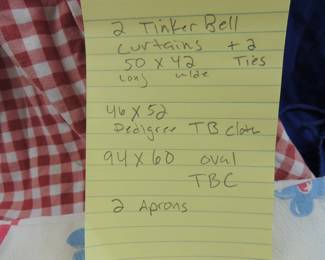 2 Tinker Bell
curtains + 2
50 x 42 Ties
long wide
46 x 52
Pedigree TB Cloth
94 x 60 oval
TBC
2 Aprons